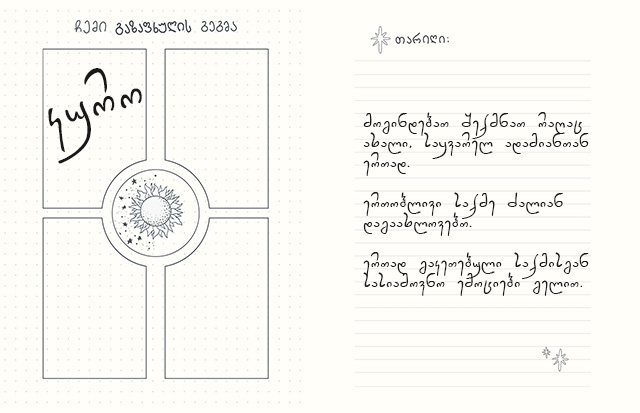 ჩემი გაზაფხულის გეგმა
თარიღი:
მოგინდებათ შექმნათ რაღაც
ახალი, საყვარელ ადამიანთან
ერთად.
ერთობლივი საქმე ძალიან
დაგაახლოვებთ.
ერთად გაკეთებული საქმისგან
სასიამოვნო ემოციები გელით.